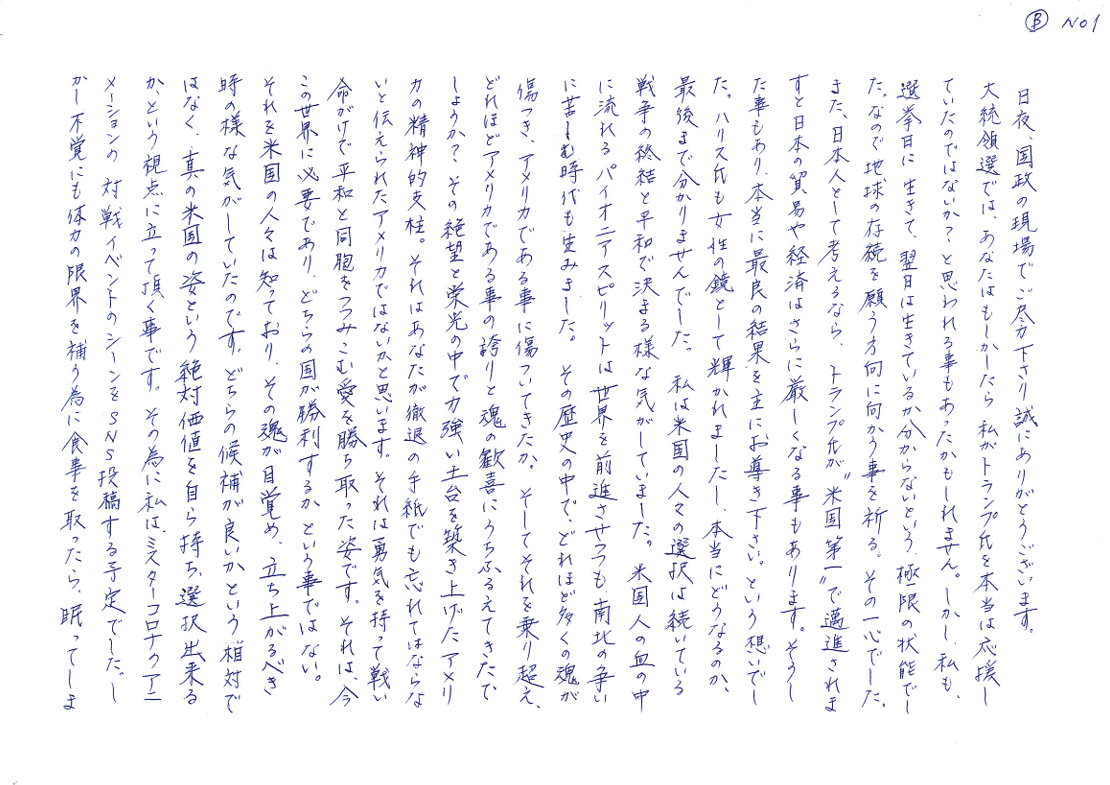 Ⓑ No1
日夜、国政の現場でご尽力下さり誠にありがとうございます。
大統領選では、あなたはもしかしたら私がトランプ氏を本当は応援し
ていたのではないか？と思われる事もあったかもしれません。しかし、私も、
選挙日に生きて、翌日は生きているか分からないという、極限の状態でし
た。なので地球の存続を願う方向に向かう事を祈る。その一心でした。
また、日本人として考えるなら、トランプ氏が“米国第一”で邁進されま
すと日本の貿易や経済はさらに厳しくなる事もあります。そうし
た事もあり、本当に最良の結果を主にお導き下さい。という想いでし
た。ハリス氏も女性の鏡として輝かれましたし、本当にどうなるのか、
最後まで分かりませんでした。私は米国の人々の選択は続いている
戦争の終結と平和で決まる様な気がしていました。米国人の血の中
に流れるパイオニアスピリットは世界を前進させつつも、南北の争い
に苦しむ時代も生みました。その歴史の中で、どれほど多くの魂が
傷つき、アメリカである事に傷ついてきたか。そしてそれを乗り超え、
どれほどアメリカである事の誇りと魂の歓喜にうちふるえてきたで
しょうか？その絶望と栄光の中で力強い土台を築き上げたアメリ
カの精神的支柱。それはあなたが撤退の手紙でも忘れてはならな
いと伝えられたアメリカではないかと思います。それは勇気を持って戦い
命がけで平和と同胞をつつみこむ愛を勝ち取った姿です。それは、今
この世界に必要であり、どちらの国が勝利するかという事ではない。
それを米国の人々は知っており、その魂が目覚め、立ち上がるべき
時の様な気がしていたのです。どちらの候補が良いかという相対で
はなく、真の米国の姿という絶対価値を自ら持ち、選択出来る
か、という視点に立って頂く事です。その為に私は、ミスターコロナのアニ
メーションの対戦イベントのシーンをSNS投稿する予定でした。し
かし不覚にも体力の限界を補う為に食事を取ったら、眠ってしま